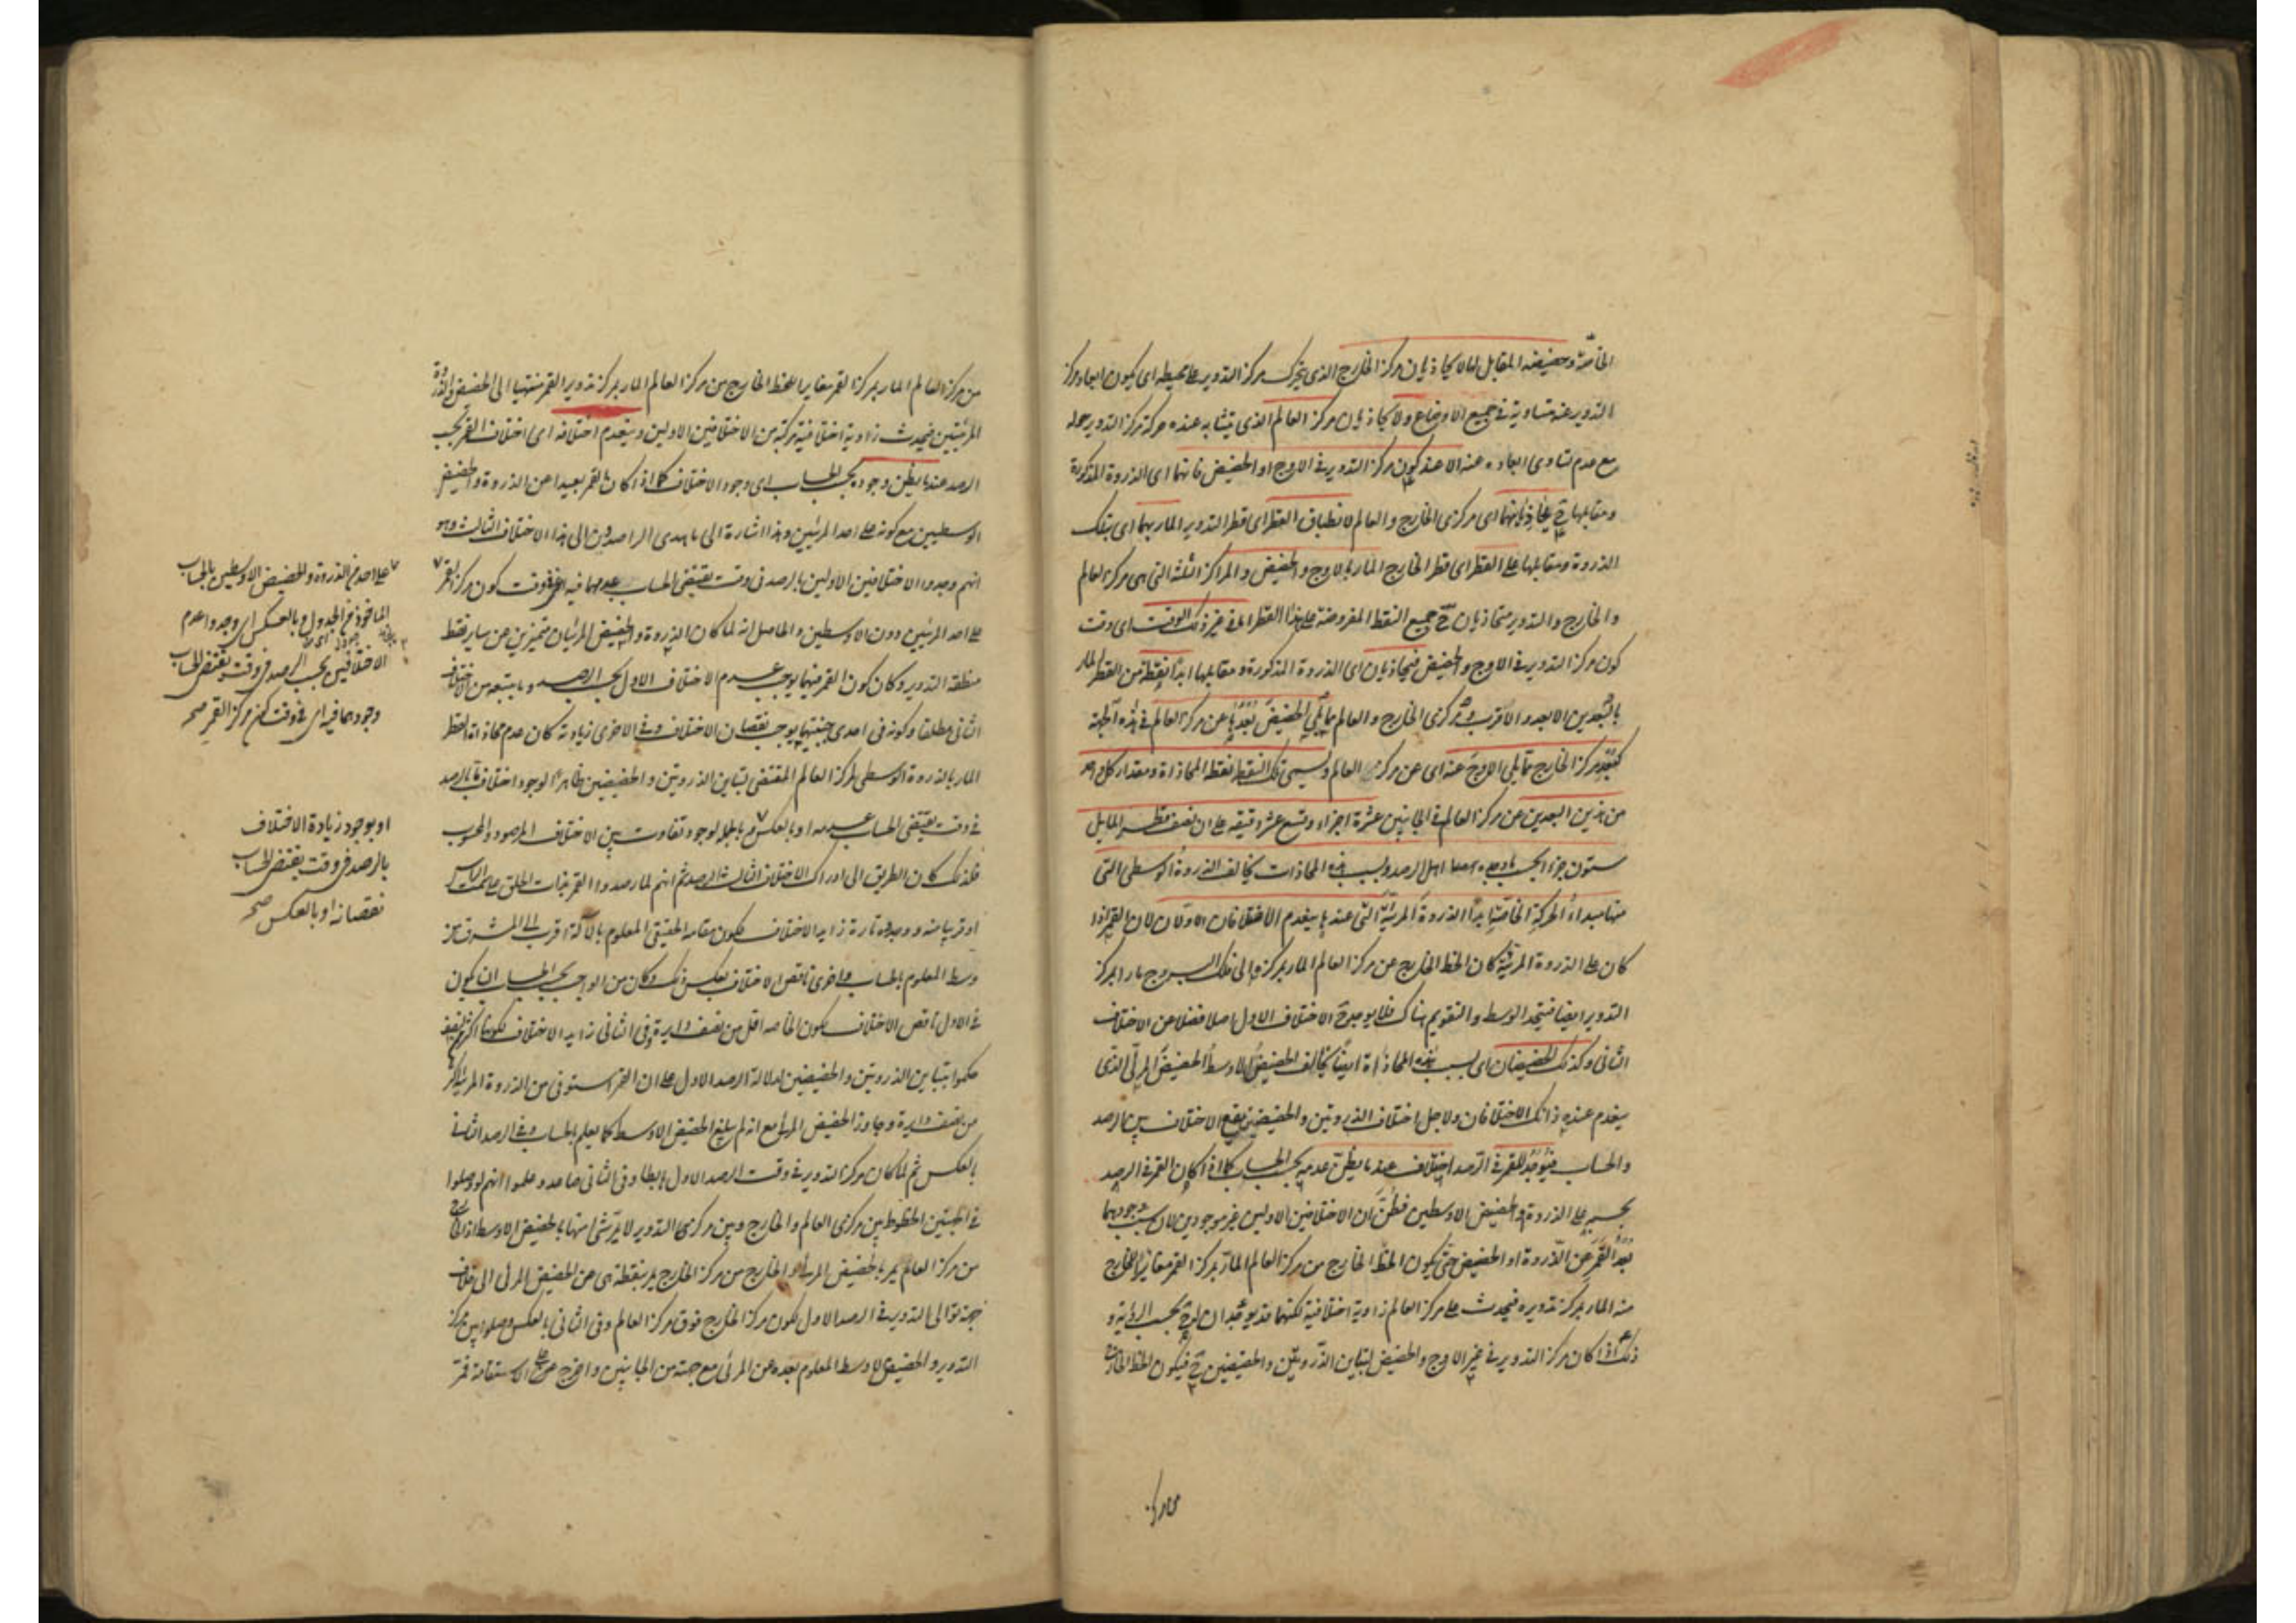 الخاصة وحضيضه المقابل لها لا يحاذيان مركز الخارج الذي يتحرك مركز التدوير على محيطه اي يكون ابعاد مركز
التدوير عنه متساوية في جميع الاوضاع ولا يحاذيان مركز العالم الذي يتشابه عنده حركة مركز التدوير حوله
مع عدم تساوي ابعاده عنه الا عند كون مركز التدوير في الاوج او الحضيض فانهما اي الذروة المذكورة
ومقابلها ح يحاذيانهما اي مركزي الخارج والعالم لانطباق القطر اي قطر التدوير المار بهما اي بتلك
الذروة ومقابلها على القطر اي قطر الخارج المار بالاوج والحضيض والمراكز الثلثة التي هي مركز العالم
والخارج والتدوير متحاذيان ح جميع النقط المفروضة على هذا القطر اما في غير ذلك الوقت اي وقت
كون مركز التدوير في الاوج والحضيض فيحاذيان اي الذروة المذكورة ومقابلها ابدا نقطة من القطر المار
بالبعدين الابعد والاقرب ومركزي الخارج والعالم مما يلي الحضيض بعدها عن مركز العالم في هذه الجهة
كبعد مركز الخارج مما يلي الاوج عنه اي عن مركز العالم ويسمى تلك النقطة نقطة المحاذاة ومقدار كل واحد
من هذين البعدين عن مركز العالم في الجانبين عشرة اجزاء وتسع عشر دقيقة على ان نصف قطر المايل
ستون جزءا بحسب ما وجده اهل الرصد وبسبب هذه المحاذات يخالف الذروة الوسطى التي
منها مبداء الحركة الخاصة ابدا الذروة المرئية التي عندها ينعدم الاختلافان الاولان لان القمر اذا
كان على الذروة المرئية كان الخط الخارج عن مركز العالم المار بمركزه الى فلك البروج مارا بمركز
التدوير ايضا فيتحد الوسط والتقويم هناك فلا يوجد ح الاختلاف الاول اصلا فضلا عن الاختلاف
الثاني وكذلك الحضيضان اي بسبب هذه المحاذاة ايضا يخالف الحضيض الاوسط الحضيض المرئي الذي
ينعدم عنده ذانك الاختلافان ولاجل اختلاف الذروتين والحضيضين يقع الاختلاف بين الرصد
والحساب فيوجد للقمر في الرصد اختلاف عند ما يظن عدمه بحسب الحساب كما اذا كان القمر في الرصد
بحسبه على الذروة والحضيض الاوسطين فظن ان الاختلافين الاولين غير موجودين لان سبب وجودهما
بعد القمر عن الذروة او الحضيض حتى يكون الخط الخارج من مركز العالم المار بمركز القمر مغايرا للخارج
منه المار بمركز تدويره فيحدث على مركز العالم زاوية اختلافية لكنهما قد يوجدان ح بحسب الرؤية و
ذلك اذا كان مركز التدوير في غير الاوج والحضيض لتباين الذروتين والحضيضين ح فيكون الخط الخارج
من مركز العالم المار بمركز القمر مغايرا للخط الخارج من مركز العالم المار بمركز تدوير القمر منتهيا الى الحضيض والذروة
المرئيين فيحدث زاوية اختلافية مركبة من الاختلافين الاولين وينعدم اختلافه اى اختلاف القمر بحسب
الرصد عند ما يظن وجوده بحسب الحساب اى وجود الاختلاف كما اذا كان القمر بعيدا عن الذروة والحضيض
الوسطيين مع كونه على احد المرئيين وهذا اشارة الى ما هدى الراصدين الى هذا الاختلاف الثالث وهو
انهم وجدوا الاختلافين الاولين بالرصد في وقت يقتضي الحساب عدمهما فيه اعني وقت كون مركز القمر
على احد المرئيين دون الاوسطين والحاصل انه لما كان الذروة والحضيض المرئيان متميزين عن ساير نقط
منطقة التدوير وكان كون القمر فيهما يوجب عدم الاختلاف الاول بحسب الرصد وما يتبعه من الاختلاف
الثاني مطلقا وكونه في احدى جنبتيهما يوجب نقصان الاختلاف وفي الاخرى زيادته كان عدم محاذاة القطر
المار بالذروة الوسطى لمركز العالم المقتضي لتباين الذروتين والحضيضين ظاهرا لوجود اختلاف ما بالرصد
في وقت يقتضي الحساب عدمه او بالعكس وبالجملة لوجود تفاوت بين الاختلاف المرصود والمحسوب
فلذلك كان الطريق الى ادراك الاختلاف الثالث الرصد ثم انهم لما رصدوا القمر بذات الحلق على سمت الراس
او قريبا منه ووجدوه تارة زايد الاختلاف لكون مقامه الحقيقي المعلوم بالآلة اقرب الى المشرق من
وسطه المعلوم بالحساب واخرى ناقص الاختلاف بعكس ذلك وكان من الواجب بحسب الحساب ان يكون
في الاول ناقص الاختلاف لكون الخاصة اقل من نصف دايرة وفي الثاني زايد الاختلاف لكونها اكثر من نصف
حكموا بتباين الذروتين والحضيضين لدلالة الرصد الاول على ان القمر استوفى من الذروة المرئية اكثر
من نصف دايرة وجاوز الحضيض المرئي مع انه لم يبلغ الحضيض الاوسط كما يعلم بالحساب وفي الرصد الثاني
بالعكس ثم لما كان مركز التدوير في وقت الرصد الاول هابطا وفي الثاني صاعدا وعلموا انهم لو وصلوا
في الجهتين الخطوط بين مركزي العالم والخارج وبين مركزي التدوير لا يمر شئ منها بالحضيض الاوسط اذ الخارج
من مركز العالم يمر بالحضيض المرئي والخارج من مركز الخارج يمر بنقطة هي عن الحضيض المرئي الى خلاف
جهة توالي التدوير في الرصد الاول لكون مركز الخارج فوق مركز العالم وفي الثاني بالعكس وصلوا بين مركز
التدوير والحضيض الاوسط المعلوم بعده عن المرئي مع جهته من الجانبين واخرج على الاستقامة فمر
على احد من الذروة والحضيض الاوسطين بالحساب
الماخوذ من الجدول وبالعكس اى وجدوا عدم
الاختلافين بحسب الرصد في وقت يقتضي الحساب
وجودهما فيه اى في وقت كون مركز القمر صح
او بوجود زيادة الاختلاف
بالرصد في وقت يقتضي الحساب
نقصانه او بالعكس صح